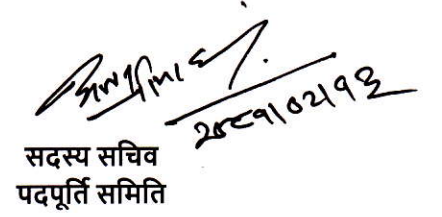 २०८१।०२।१६
सदस्य सचिव
पदपूर्ति समिति